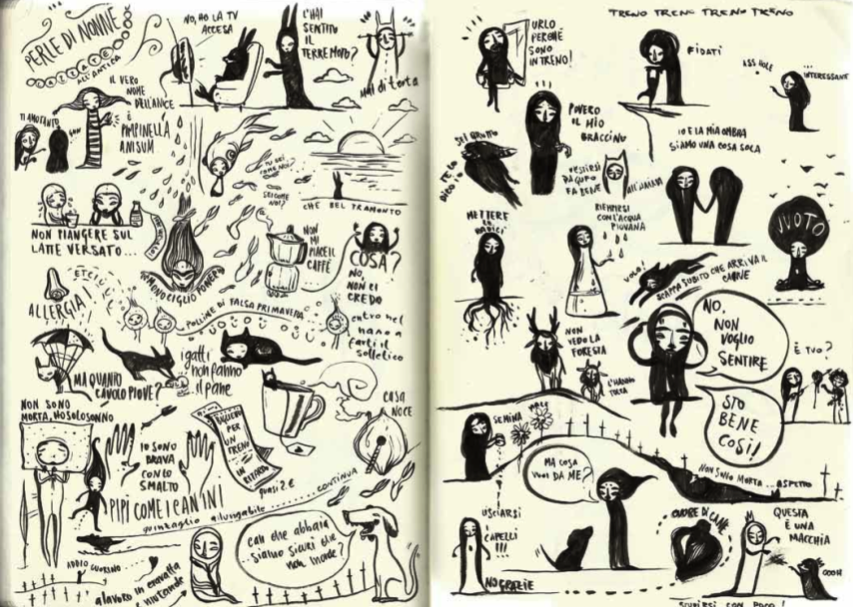 PERLE DI NONNE
ALL'ANTICA
NO, HO LA TV
ACCESA
L'HAI
SENTITO
IL
TERREMOTO?
mal di testa
TI AMO TANTO
IL VERO
NOME
DELL'ANICE
È
PIMPINELLA
ANISUM
TU SEI
COME NOI?
SEI COME
NOI?
CHE BEL TRAMONTO
NON PIANGERE SUL
LATTE VERSATO...
MONOCIGLIO POWER
NON
MI
PIACE IL
CAFFÈ
COSA?
NO,
NON CI
CREDO
ETCIÙ!
ALLERGIA!
POLLINE DI FALSA PRIMAVERA
entro nel
naso a
farti il
solletico
MA QUANTO
CAVOLO PIOVE?
i gatti
non fanno
il pane
NON SONO
MORTA, HO SOLO SONNO
IO SONO
BRAVA
CON LO
SMALTO
PER
UN
TRENO
IN RITARDO
quasi 2 €
CASA
NOCE
PIPÌ COME I CANINI
guinzaglio allungabile ........ continua
can che abbaia
...siamo sicuri che
non morde?
a lavoro in cravatta
TRENO TRENO TRENO TRENO
URLO
PERCHÉ
SONO
IN TRENO!
FIDATI
ASSHOLE
INTERESSANTE
POVERO
IL MIO
BRACCINO
SEI BRUTTO
TE LO
DICO IO
IO E LA MIA OMBRA
SIAMO UNA COSA SOLA
VESTIRSI
DA GUFO
FA BENE
ALL'ANIMA
METTERE
LE
RADICI
RIEMPIRSI
CON L'ACQUA
PIOVANA
VUOTO
VOLO!
SCAPPA SUBITO CHE ARRIVA IL
CANE
NON
VEDO LA
FORESTA
L'HANNO
TUTTA
NO,
NON
VOGLIO
SENTIRE
È TUO?
STO
BENE
COSÌ!
SEMINA
MALE
MA COSA
VUOI DA ME?
NON SONO MORTA ... ASPETTO
LISCIARSI
I
CAPELLI
!!!
NO GRAZIE
CUORE DI CANE
QUESTA
È UNA
MACCHIA
OOOH